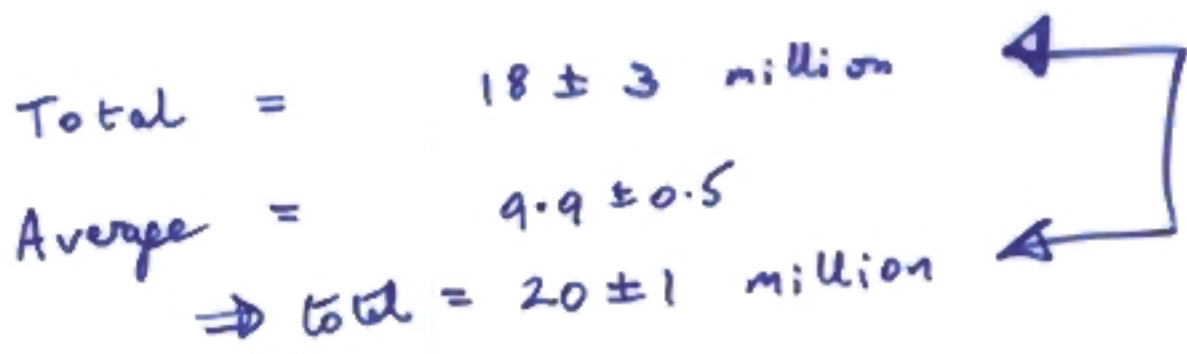 Total = 18 ± 3 million
Average = 9.9 ± 0.5
⇒ total = 20 ± 1 million